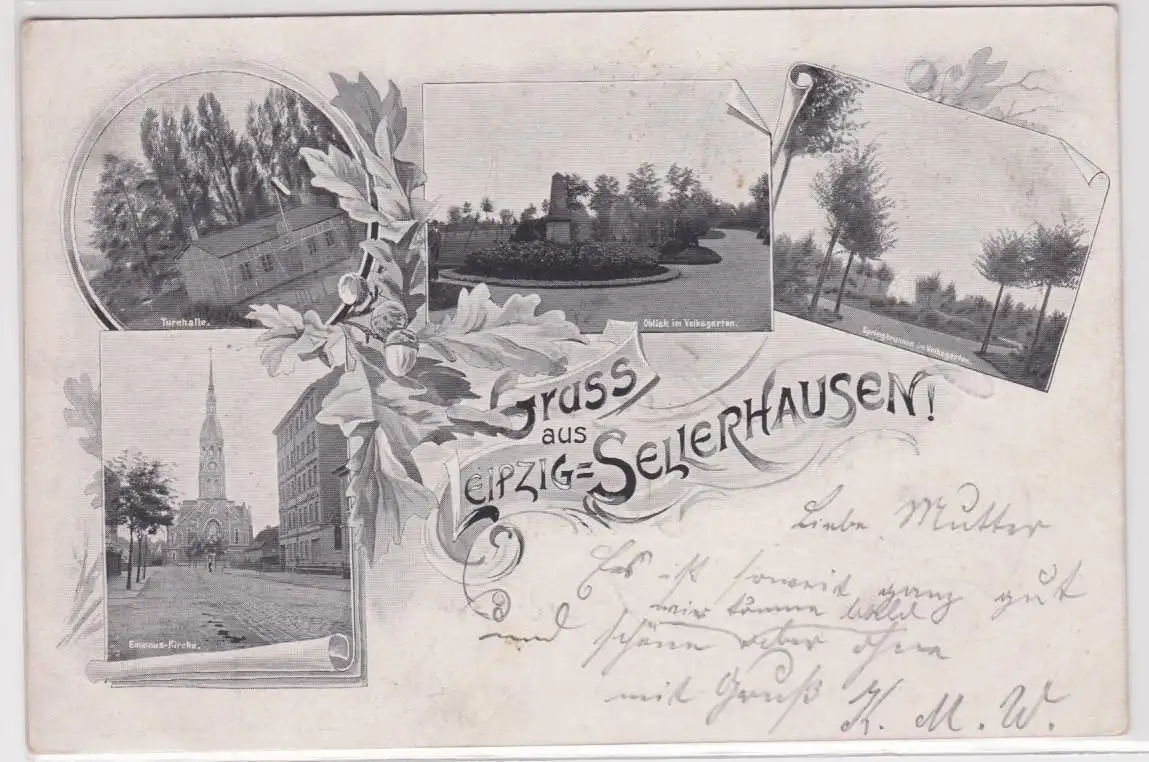 Turnhalle.
Oblisk im Volksgarten.
Springbrunnen im Volksgarten.
Emmaus-Kirche.
Gruss
aus
Leipzig=Sellerhausen!
Liebe Mutter
Es ist soweit ganz gut
bald
und schöne aber ohne
mit Gruß K. M. W.